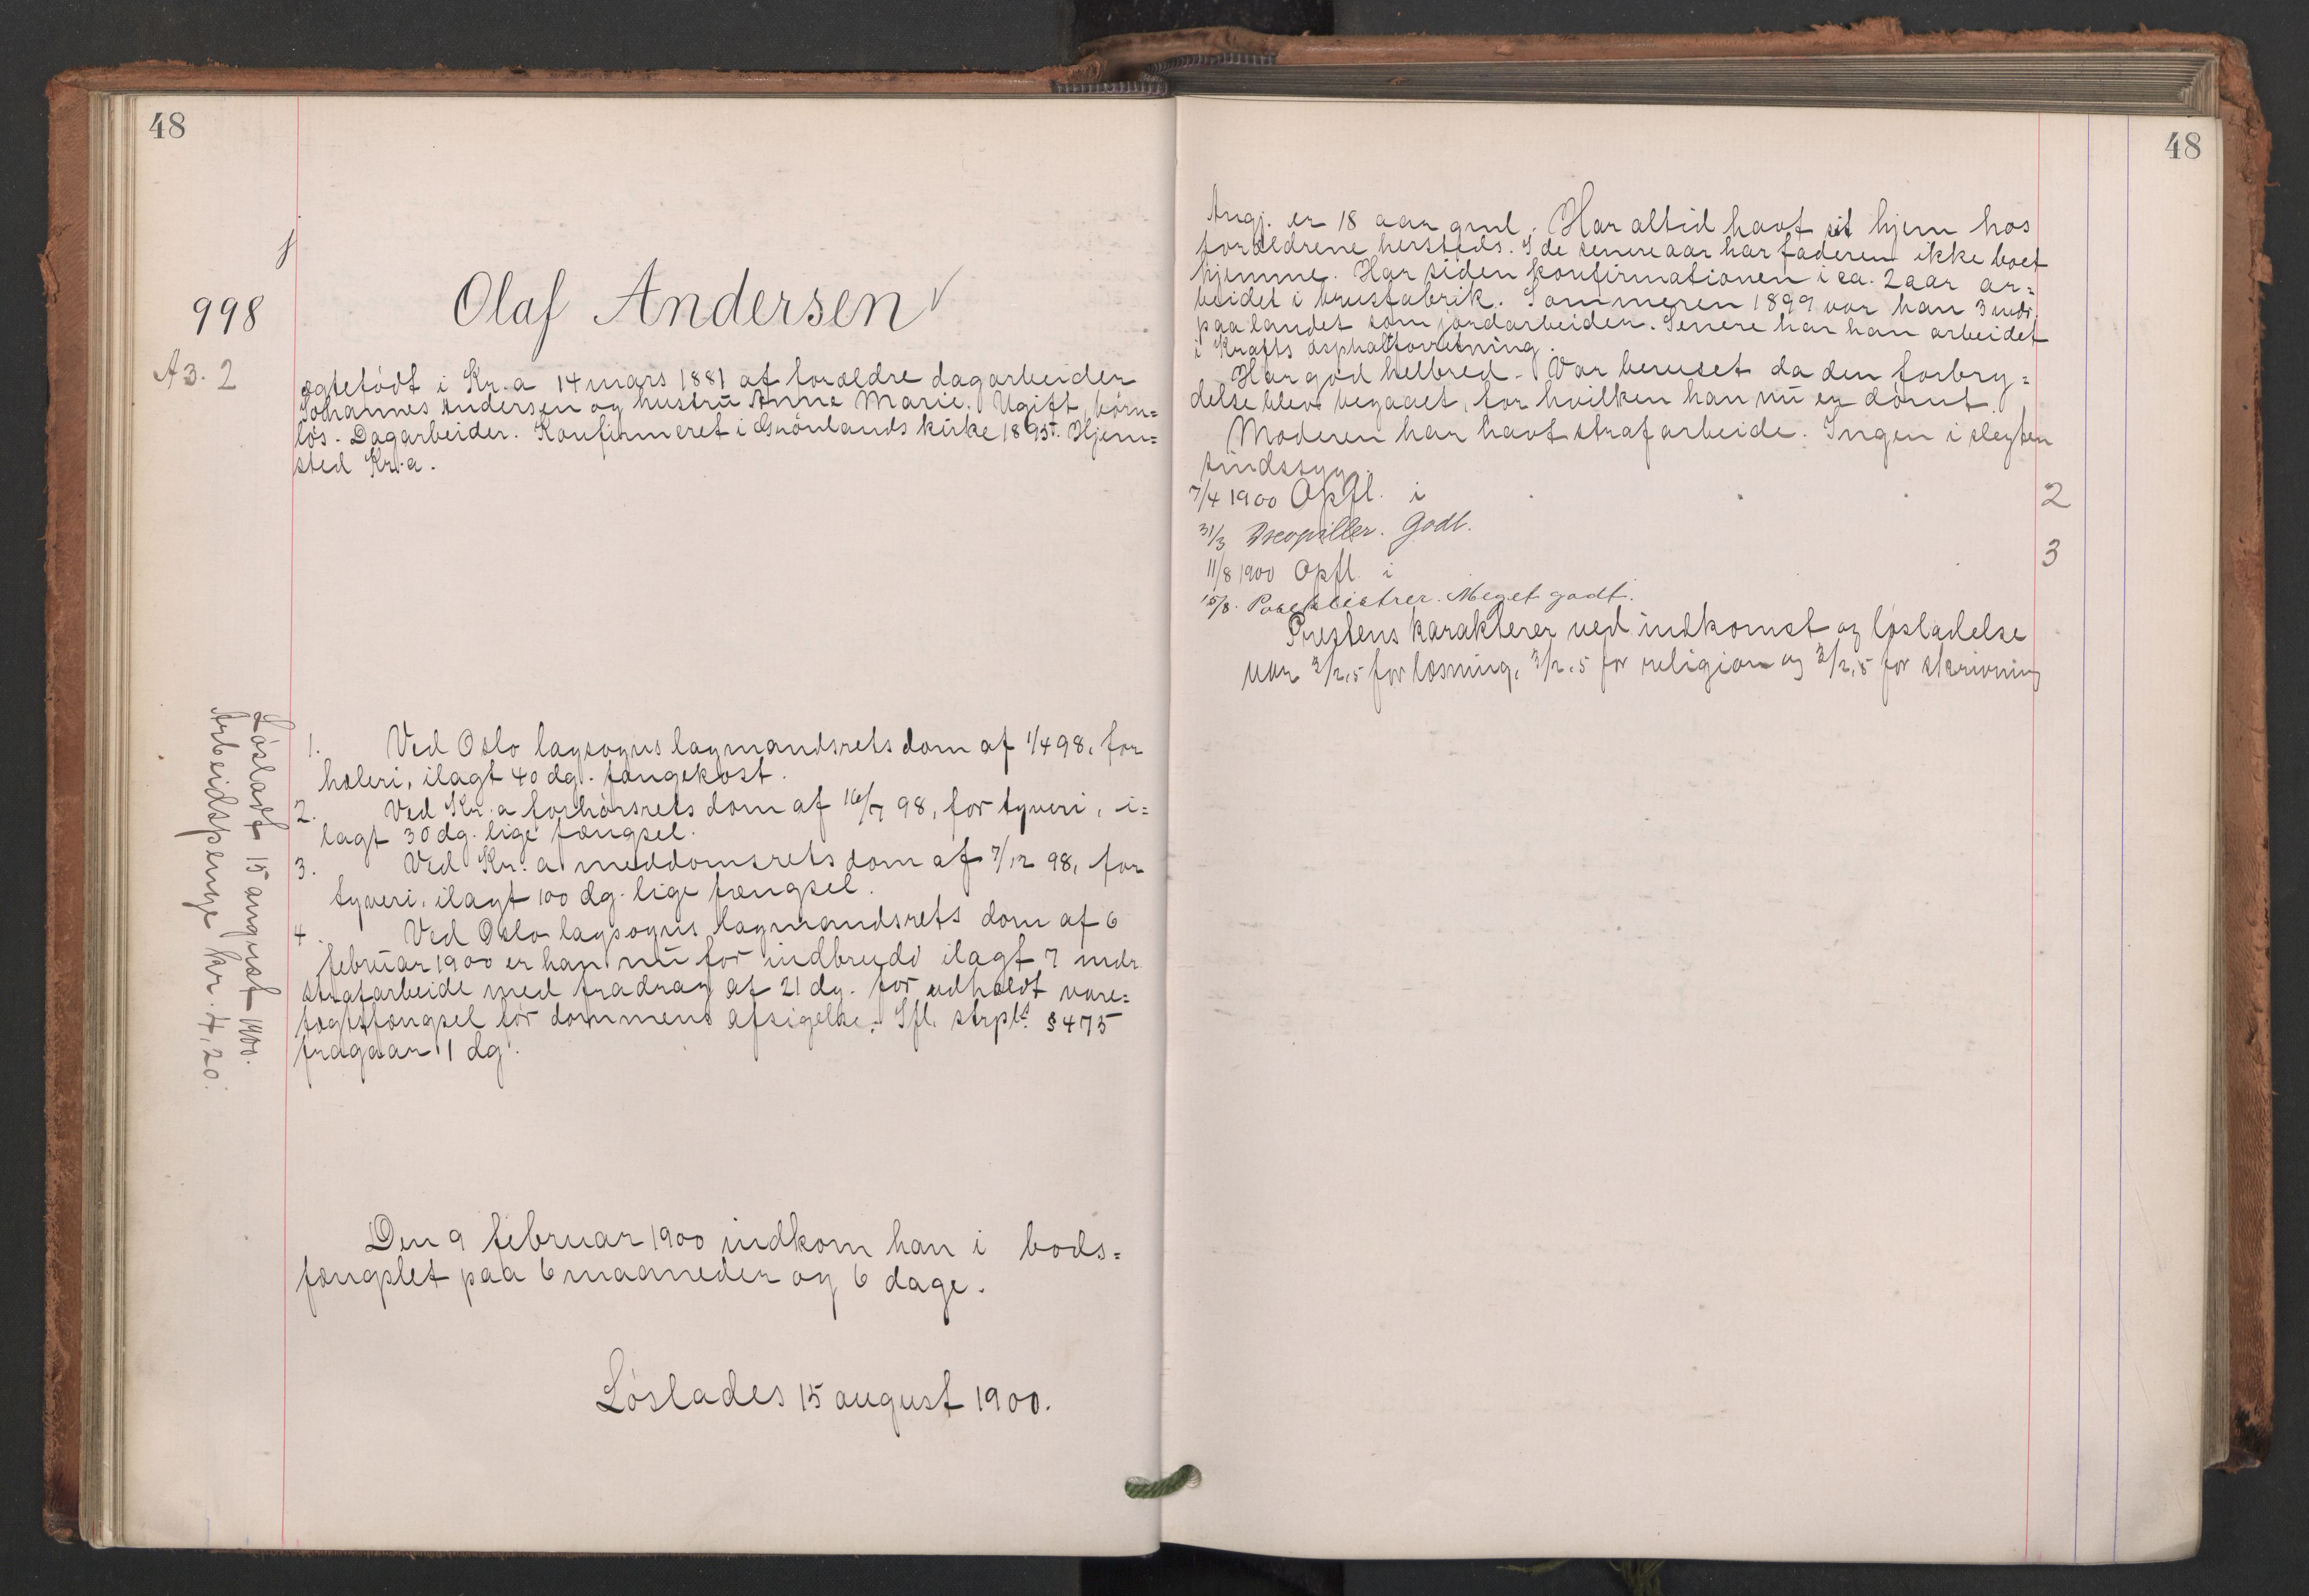 48
998
A 3. 2
Olaf Andersen
ægtefødt i Kr.a 14 mars 1881 af forældre dagarbeider
Johannes Andersen og hustru Anne Marie. Ugift, børn=
løs. Dagarbeider. Konfirmeret i Grønlands kirke 1895. Hjem=
sted Kr.a.
1. Ved Oslo lagsogns lagmandsrets dom af 1/4 98, for
hæleri, ilagt 40 dg. fangekost.
2. Ved Kr.a forhørsrets dom af 16/7 98, for tyveri, i=
lagt 30 dg. lige fængsel.
3. Ved Kr.a meddomsrets dom af 7/12 98, for
tyveri, ilagt 100 dg. lige fængsel.
4. Ved Oslo lagsogns lagmandsrets dom af 6
februar 1900 er han nu for indbrudd ilagt 7 mdr
strafarbeide med fradrag af 21 dg. for udholdt vare=
tægtsfængsel før dommens afsigelse. Ifl. strpl. § 475
fragaar 1 dg.
Løsladt 15 august 1900.
Arbeidspenge kr. 4,20.
Den 9 februar 1900 indkom han i bods=
fængslet paa 6 maaneder og 6 dage.
Løslades 15 august 1900.
48
Angj. er 18 aar gml. Har altid havt sit hjem hos
forældrene hersteds. I de senere aar har faderen ikke boet
hjemme. Har siden konfirmationen i ca. 2 aar ar=
beidet i brusfabrik. Sommeren 1899 var han 3 mdr.
paa landet som jordarbeider. Senere har han arbeidet
i Krafts asphaltforretning.
Har god helbred. Var beruset da den forbry=
delse blev begaaet, for hvilken han nu er dømt.
Moderen har havt strafarbeide. Ingen i slegten
sindssyg.
7/4 1900 Opfl. i 2
31/3 Godt.
11/8 1900 Opfl. i 3
15/8. Meget godt.
Prestens karakterer ved indkomst og løsladelse
var 3/2,5 for læsning, 3/2,5 for religion og 3/2,5 for skrivning